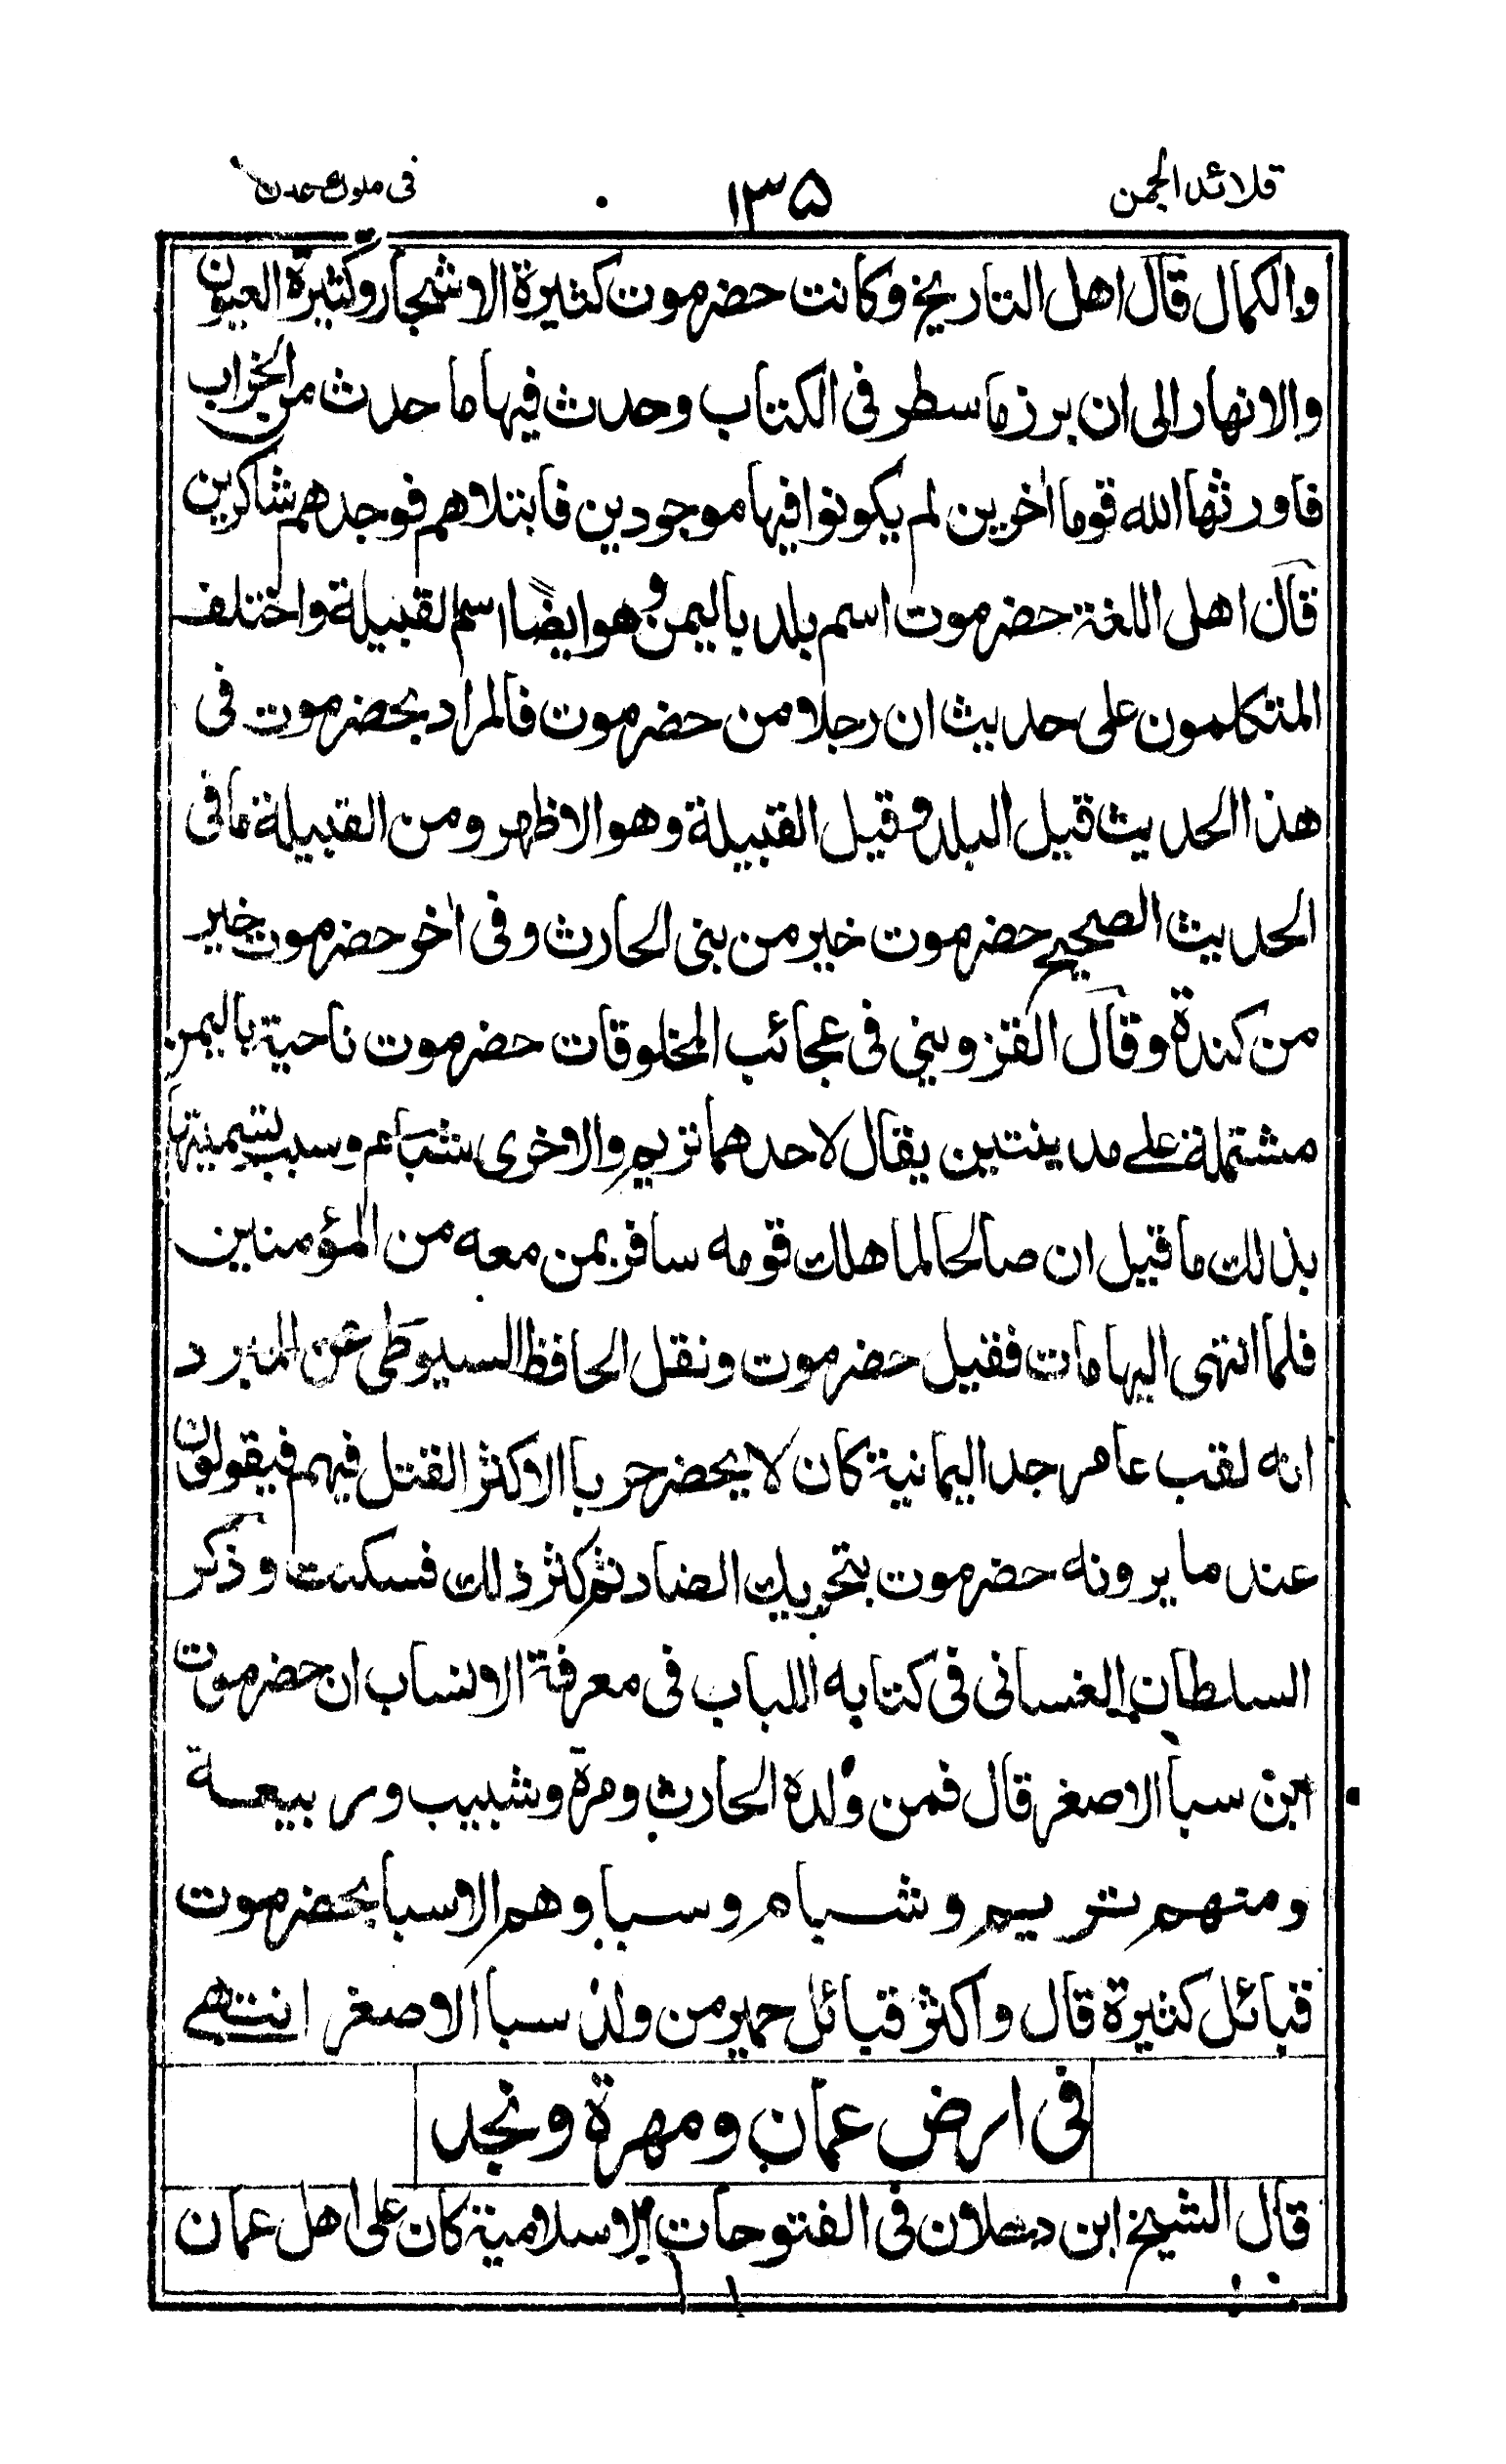 قلائد الجمن ١٣٥ فى ملوك عدن
والكمال قال اهل التاريخ وكانت حضرموت كثيرة الاشجار وكثيرة العيون
والانهار الى ان برز ما سطر فى الكتاب وحدث فيها ما حدث من الخراب
فاورثها الله قوما اخرين لم يكونوا فيها موجودين فابتلاهم فوجدهم شاكرين
قال اهل اللغة حضرموت اسم بلد باليمن وهو ايضًا اسم القبيلة واختلف
المتكلمون على حديث ان رجلا من حضرموت فالمراد بحضرموت فى
هذا الحديث قيل البلد وقيل القبيلة وهو الاظهر ومن القبيلة ما فى
الحديث الصحيح حضرموت خير من بنى الحارث وفى اخر حضرموت خير
من كندة وقال القزويني فى عجائب المخلوقات حضرموت ناحية باليمن
مشتملة على مدينتين يقال لاحدهما تريم والاخرى شبام وسبب تسميتها
بذلك ما قيل ان صالحا لما هلك قومه سافر بمن معه من المؤمنين
فلما انتهى اليها مات فقيل حضرموت ونقل الحافظ السيوطى عن المبرد
انه لقب عامر جد اليمانية كان لا يحضر حربا الا كثر القتل فيهم فيقولون
عند ما يرونه حضرموت بتحريك الضاد ثم كثر ذلك فسكنت وذكر
السلطان الغسانى فى كتابه اللباب فى معرفة الانساب ان حضرموت
ابن سبا الاصغر قال فمن وُلده الحارث ومرة وشبيب وربيعة
ومنهم تريم وشبام وسبا وهم الاسبا بحضرموت
قبائل كثيرة قال واكثر قبائل حمير من ولد سبا الاصغر انتهى
فى ارض عمان ومهرة ونجد
قال الشيخ ابن دحلان فى الفتوحات الاسلامية كان على اهل عمان